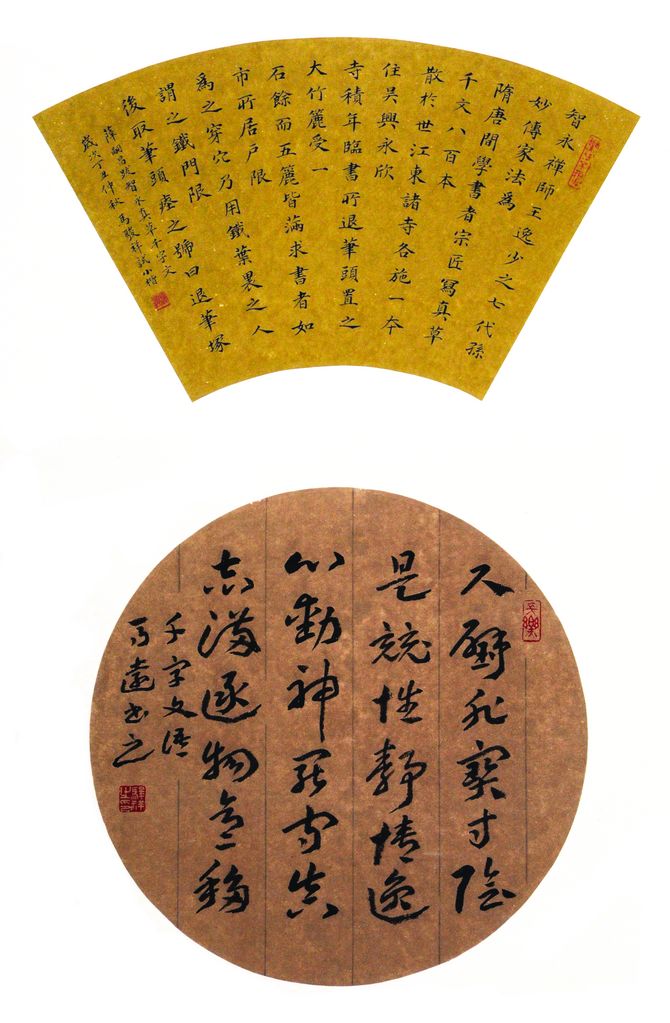 智永禪師王逸少之七代孫
妙傳家法為
隋唐間學書者宗匠寫真草
千文八百本
散於世江東諸寺各施一本
住吳興永欣
寺積年臨書所退筆頭置之
大竹簏受一
石餘而五簏皆滿求書者如
市所居戶限
為之穿穴乃用鐵葉裹之人
謂之鐵門限
後取筆頭瘞之號曰退筆塚
薛嗣昌跋智永真草千字文
歲次丁丑仲秋馬駿祥試小楷
尺璧非寶寸陰
是競性靜情逸
心動神疲守真
志滿逐物意移
千字文語
馬遠書之